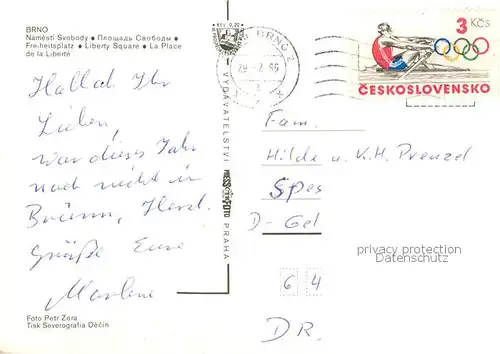 BRNO
Náměstí Svobody ● Площадь Свободы ●
Freiheitsplatz ● Liberty Square ● La Place
de la Liberté
Hallah Ihr
Lieben!
war dieses Jahr
noch nicht in
Brünn, Herzl.
Grüße Eure
Marlene
Foto Petr Zora
Tisk Severografia Děčín
VYDAVATELSTVÍ
PRESSFOTO
PRAHA
BRNO 2
3 Kčs
ČESKOSLOVENSKO
Fam.
Hilde u. K.H. Prenzel
D-
privacy protection
Datenschutz
6 4
DR.